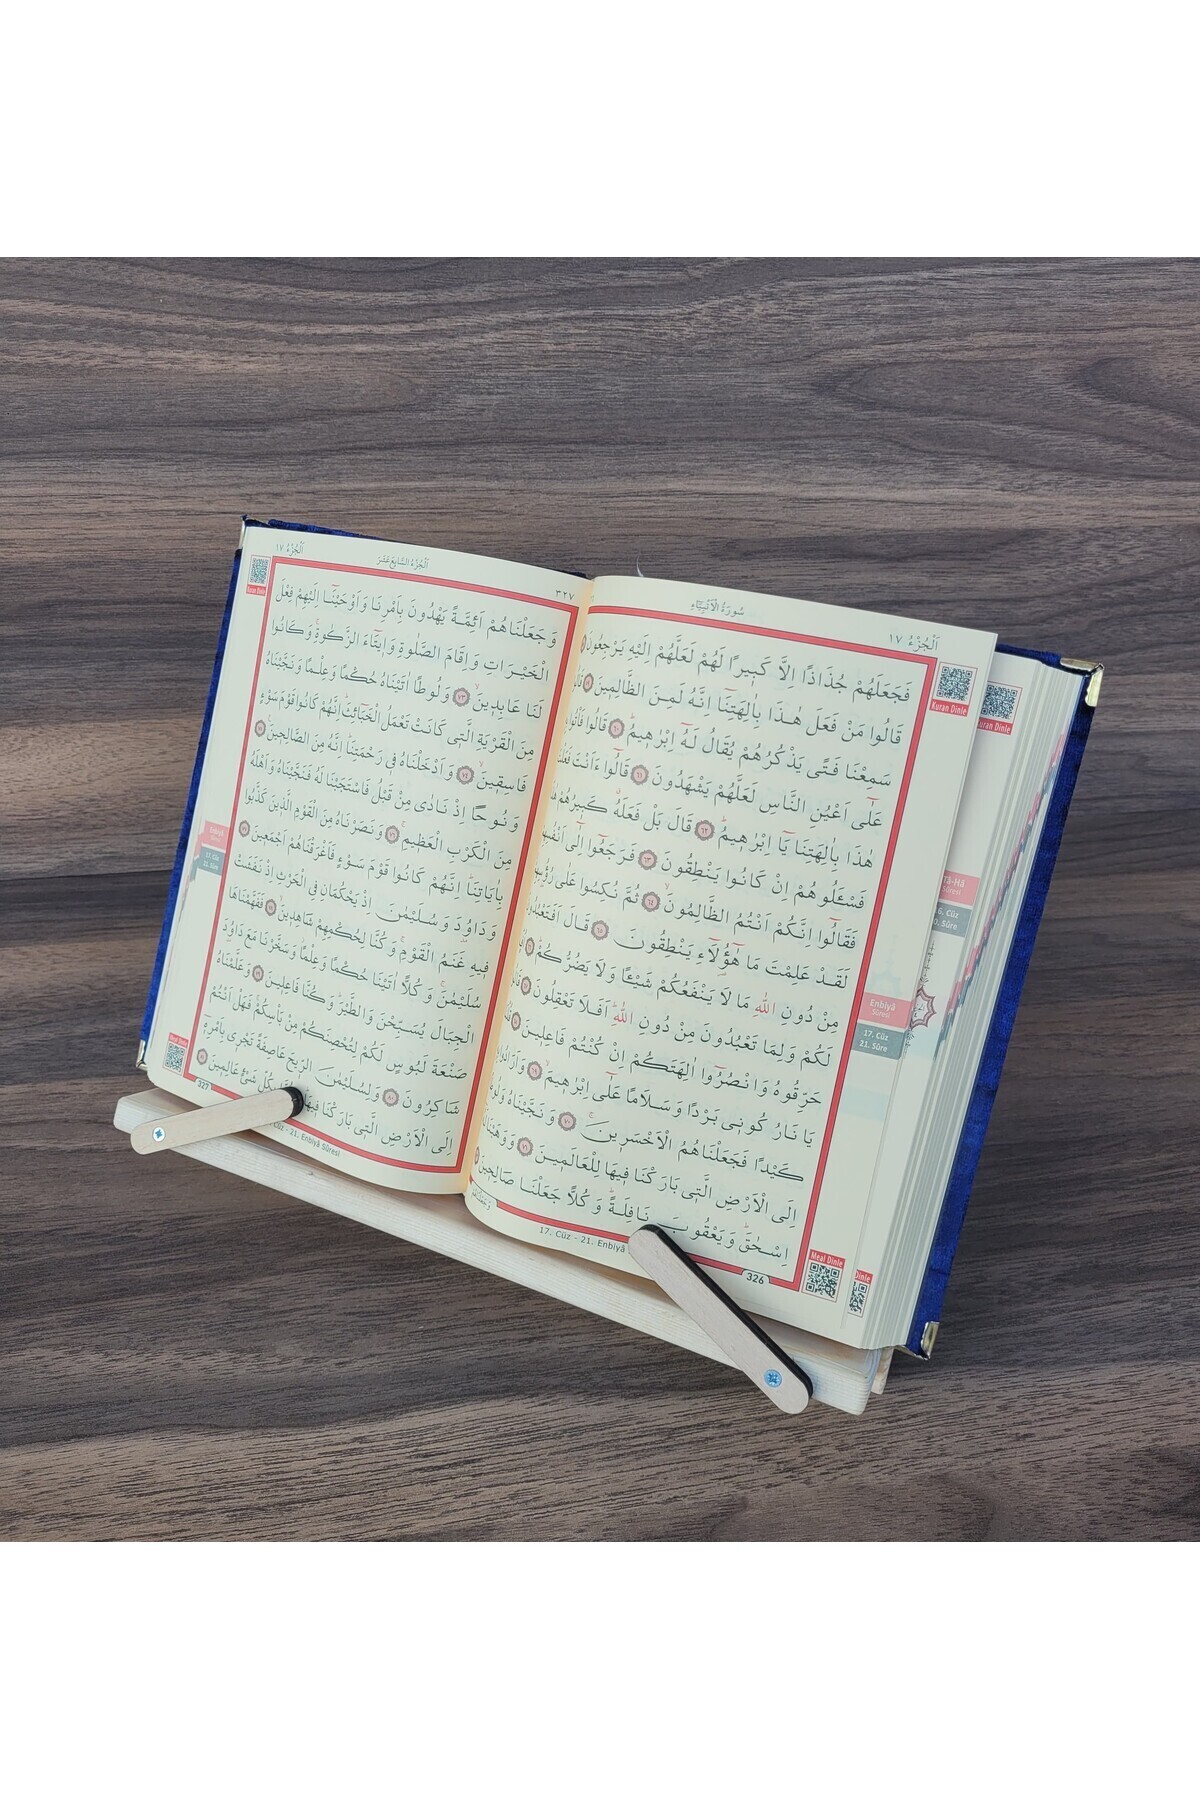 اَلْجُزْءُ ١٧
سُورَةُ الْاَنْبِيَاءِ
فَجَعَلَهُمْ جُذَاذًا اِلَّا كَبِيرًا لَهُمْ لَعَلَّهُمْ اِلَيْهِ يَرْجِعُونَ
قَالُوا مَنْ فَعَلَ هٰذَا بِاٰلِهَتِنَٓا اِنَّهُ لَمِنَ الظَّالِمِينَ ٥٩
سَمِعْنَا فَتًى يَذْكُرُهُمْ يُقَالُ لَهُٓ اِبْرٰهِيمُ ٦٠ قَالُوا فَأْتُوا
عَلٰٓى اَعْيُنِ النَّاسِ لَعَلَّهُمْ يَشْهَدُونَ ٦١ قَالُٓوا ءَاَنْتَ فَعَلْتَ
هٰذَا بِاٰلِهَتِنَا يَٓا اِبْرٰهِيمُ ٦٢ قَالَ بَلْ فَعَلَهُ كَبِيرُهُمْ
فَسْـَٔلُوهُمْ اِنْ كَانُوا يَنْطِقُونَ ٦٣ فَرَجَعُٓوا اِلٰٓى اَنْفُسِهِمْ
فَقَالُٓوا اِنَّكُمْ اَنْتُمُ الظَّالِمُونَ ٦٤ ثُمَّ نُكِسُوا عَلٰى
لَقَدْ عَلِمْتَ مَا هٰٓؤُلَٓاءِ يَنْطِقُونَ ٦٥ قَالَ اَفَتَعْبُدُونَ
مِنْ دُونِ اللّٰهِ مَا لَا يَنْفَعُكُمْ شَيْـًٔا وَلَا يَضُرُّكُمْ
لَكُمْ وَلِمَا تَعْبُدُونَ مِنْ دُونِ اللّٰهِ اَفَلَا تَعْقِلُونَ
حَرِّقُوهُ وَانْصُرُٓوا اٰلِهَتَكُمْ اِنْ كُنْتُمْ فَاعِلِينَ
يَا نَارُ كُونِى بَرْدًا وَسَلَامًا عَلٰٓى اِبْرٰهِيمَ ٦٩ وَاَرَادُوا
كَيْدًا فَجَعَلْنَاهُمُ الْاَخْسَرِينَ ٧٠ وَنَجَّيْنَاهُ وَلُوطًا
اِلَى الْاَرْضِ الَّتِى بَارَكْنَا فِيهَا لِلْعَالَمِينَ ٧١ وَوَهَبْنَا
اِسْحٰقَ وَيَعْقُوبَ نَافِلَةً وَكُلًّا جَعَلْنَا صَالِحِينَ
17. Cüz - 21. Enbiyâ
326
Kuran Dinle
Enbiyâ
Sûresi
17. Cüz
21. Sûre
Meal Dinle
Kuran Dinle
Tâ-Hâ
Sûresi
Dinle
اَلْجُزْءُ ١٧
اَلْجُزْءُ السَّابِعَ عَشَرَ
٣٢٧
وَجَعَلْنَاهُمْ اَئِمَّةً يَهْدُونَ بِاَمْرِنَا وَاَوْحَيْنَٓا اِلَيْهِمْ فِعْلَ
الْخَيْرَاتِ وَاِقَامَ الصَّلٰوةِ وَاِيتَٓاءَ الزَّكٰوةِ وَكَانُوا
لَنَا عَابِدِينَ ٧٣ وَلُوطًا اٰتَيْنَاهُ حُكْمًا وَعِلْمًا وَنَجَّيْنَاهُ
مِنَ الْقَرْيَةِ الَّتِى كَانَتْ تَعْمَلُ الْخَبَٓائِثَ اِنَّهُمْ كَانُوا قَوْمَ سَوْءٍ
فَاسِقِينَ ٧٤ وَاَدْخَلْنَاهُ فِى رَحْمَتِنَا اِنَّهُ مِنَ الصَّالِحِينَ ٧٥
وَنُوحًا اِذْ نَادٰى مِنْ قَبْلُ فَاسْتَجَبْنَا لَهُ فَنَجَّيْنَاهُ وَاَهْلَهُ
مِنَ الْكَرْبِ الْعَظِيمِ ٧٦ وَنَصَرْنَاهُ مِنَ الْقَوْمِ الَّذِينَ كَذَّبُوا
بِاٰيَاتِنَا اِنَّهُمْ كَانُوا قَوْمَ سَوْءٍ فَاَغْرَقْنَاهُمْ اَجْمَعِينَ ٧٧
وَدَاوُدَ وَسُلَيْمٰنَ اِذْ يَحْكُمَانِ فِى الْحَرْثِ اِذْ نَفَشَتْ
فِيهِ غَنَمُ الْقَوْمِ وَكُنَّا لِحُكْمِهِمْ شَاهِدِينَ ٧٨ فَفَهَّمْنَاهَا
سُلَيْمٰنَ وَكُلًّا اٰتَيْنَا حُكْمًا وَعِلْمًا وَسَخَّرْنَا مَعَ دَاوُدَ
الْجِبَالَ يُسَبِّحْنَ وَالطَّيْرَ وَكُنَّا فَاعِلِينَ ٧٩ وَعَلَّمْنَاهُ
صَنْعَةَ لَبُوسٍ لَكُمْ لِتُحْصِنَكُمْ مِنْ بَأْسِكُمْ فَهَلْ اَنْتُمْ
شَاكِرُونَ ٨٠ وَلِسُلَيْمٰنَ الرِّيحَ عَاصِفَةً تَجْرِى بِاَمْرِهِٓ
اِلَى الْاَرْضِ الَّتِى بَارَكْنَا فِيهَا بِكُلِّ شَىْءٍ عَالِمِينَ ٨١
Cüz - 21. Enbiyâ Sûresi
327
Kuran Dinle
17. Cüz
21. Sûre
Meal Dinle